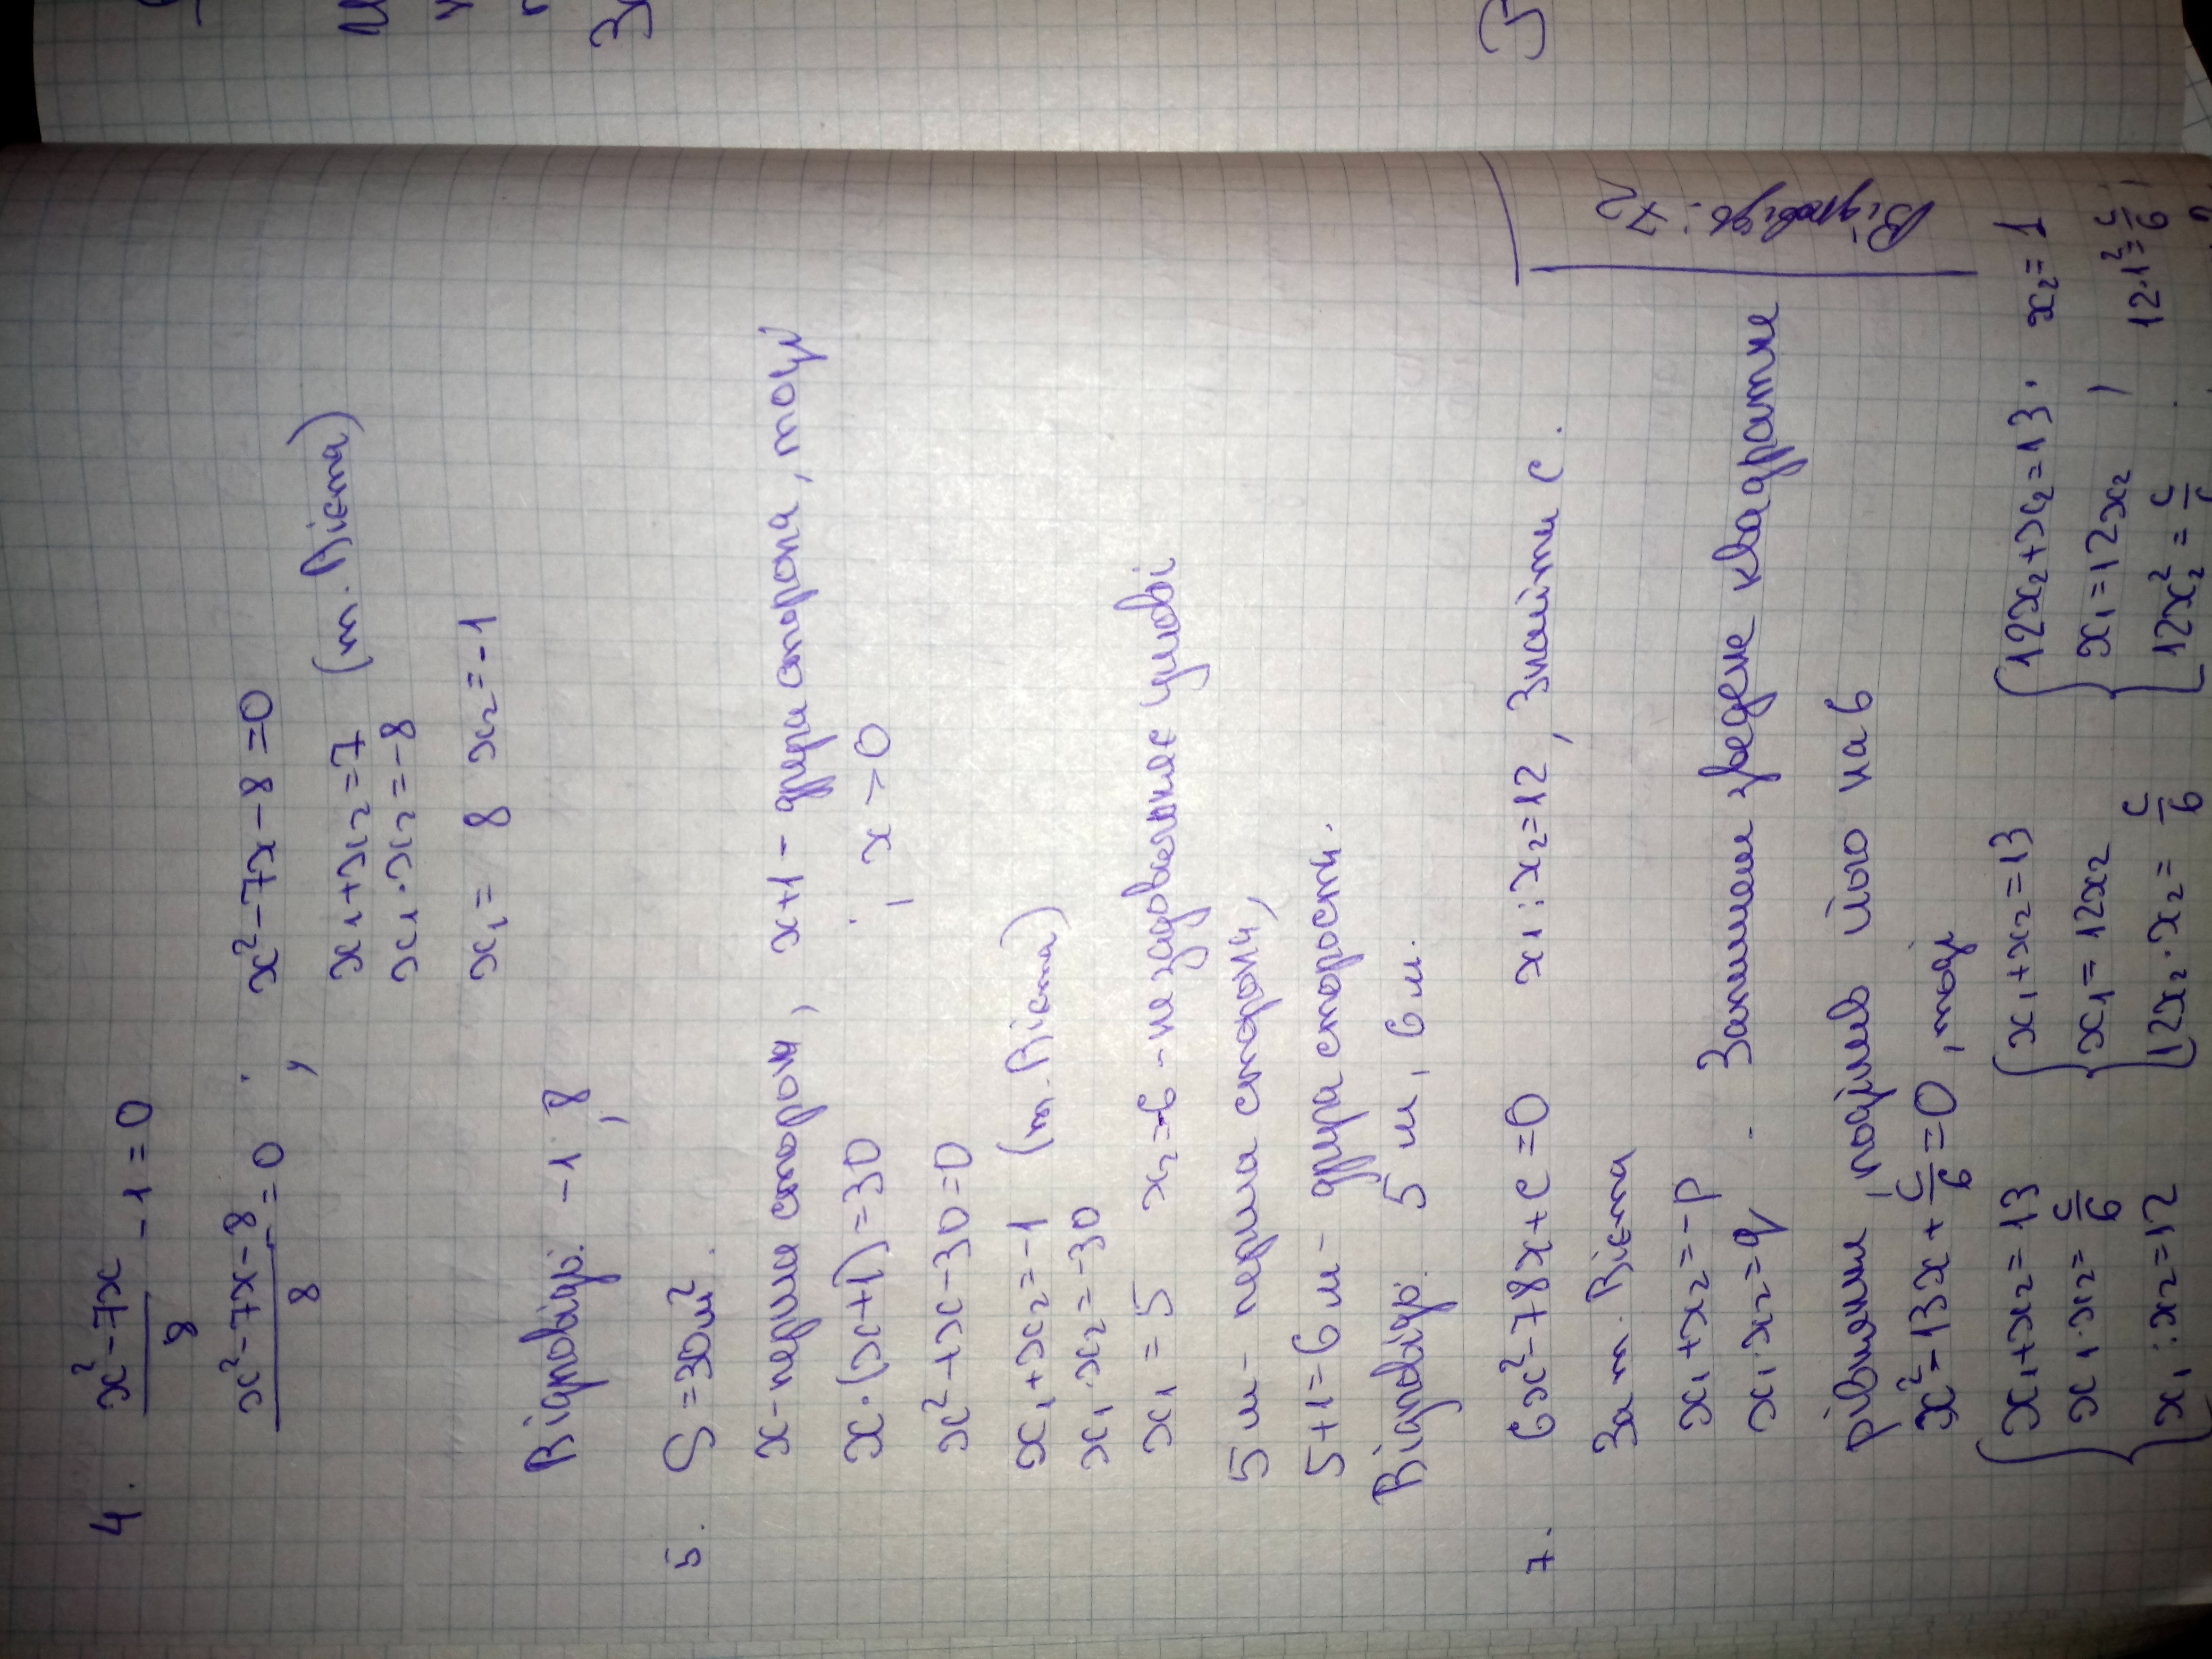 4. x²-7x/8 - 1 = 0
x²-7x-8/8 = 0; x²-7x-8=0
x₁+x₂=7 (т. Вієта)
x₁·x₂=-8
x₁= 8 x₂=-1
Відповідь: -1; 8
5. S=30м².
x-перша сторона, x+1- друга сторона, тоді
x·(x+1)=30 ; x>0
x²+x-30=0
x₁+x₂=-1 (т. Вієта)
x₁·x₂=-30
x₁=5 x₂=-6 -не задовольняє умові
5 м- перша сторона,
5+1=6 м- друга сторость.
Відповідь: 5 м, 6 м.
7. 6x²-78x+c=0 x₁:x₂=12, Знайти c.
За т. Вієта
x₁+x₂=-p
x₁·x₂=q . Запишем зведене квадратне
рівняння, поділив його на 6
x²-13x+c/6=0, тоді
{x₁+x₂=13 {x₁+x₂=13 {12x₂+x₂=13. x₂=1
x₁·x₂=c/6 x₁=12x₂ x₁=12x₂ ;
x₁:x₂=12 12x₂·x₂=c/6 12x₂²=c/6 12·1²=c/6;
Відповідь: 72